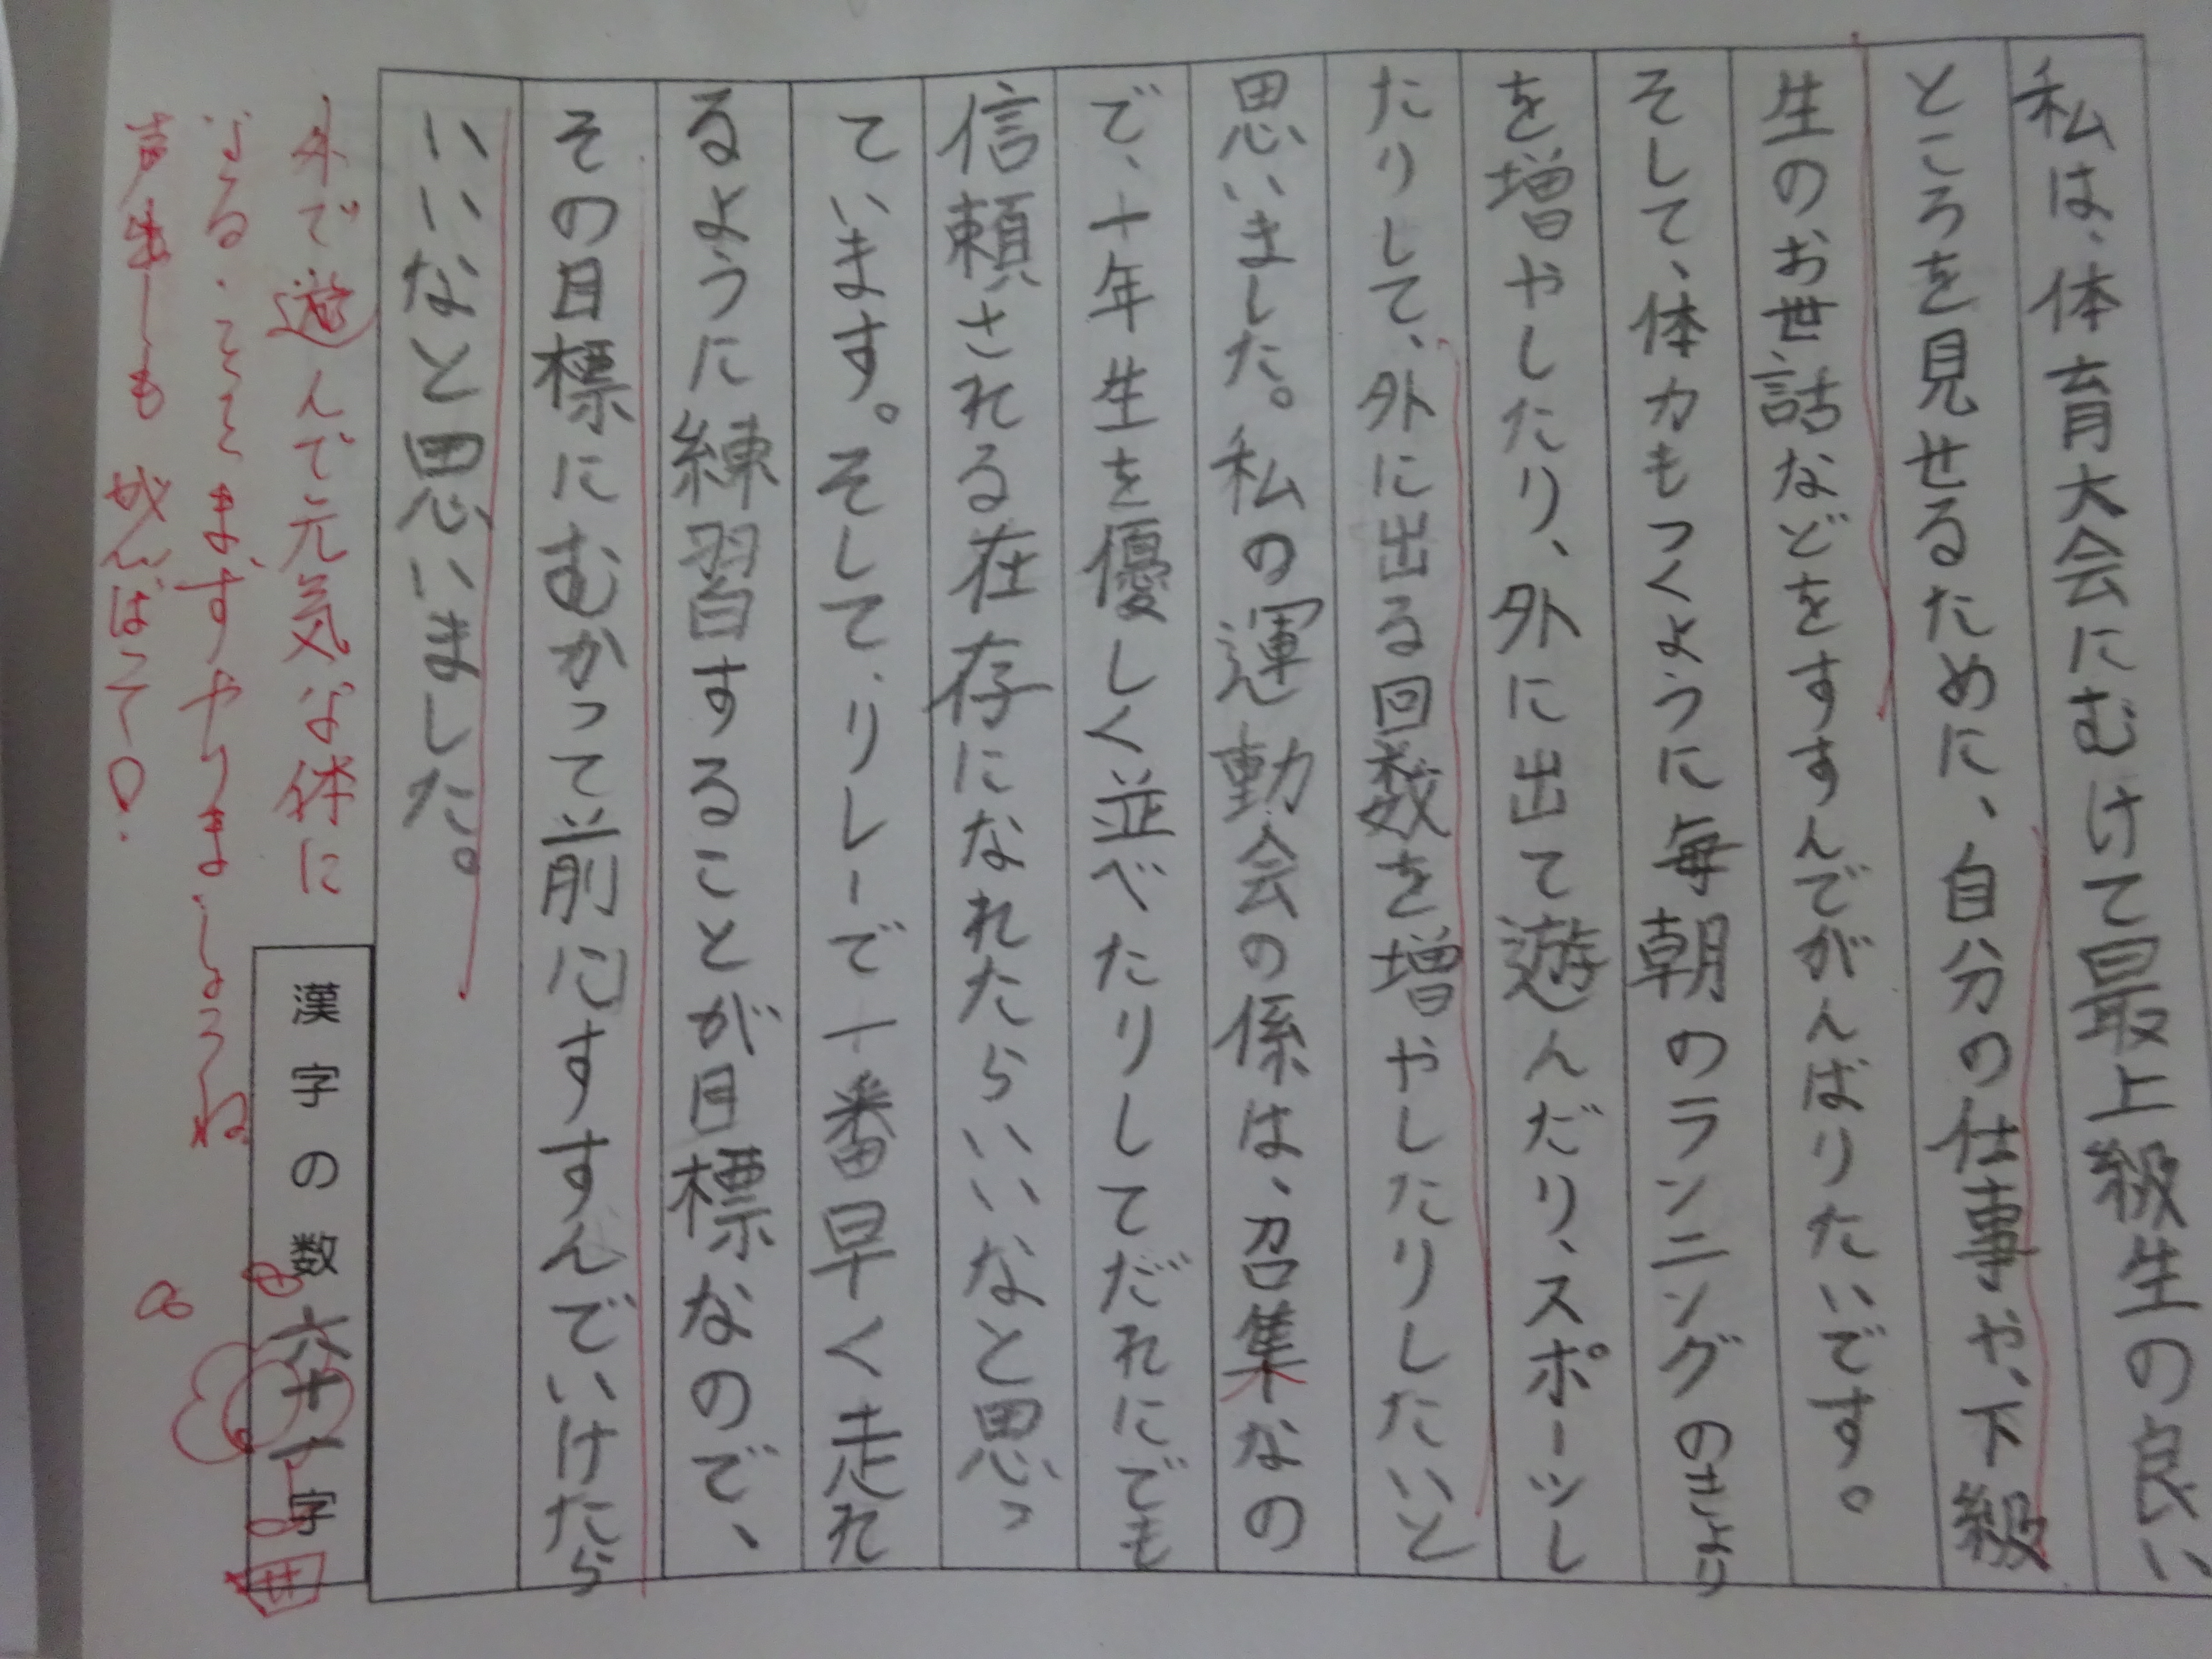 私は、体育大会にむけて最上級生の良い
ところを見せるために、自分の仕事や、下級
生のお世話などをすすんでがんばりたいです。
そして、体力もつくように毎朝のランニングのきより
を増やしたり、外に出て遊んだり、スポーツし
たりして、外に出る回数を増やしたりしたいと
思いました。私の運動会の係は、召集なの
で、一年生を優しく並べたりしてだれにでも
信頼される在存になれたらいいなと思っ
ています。そして、リレーで一番早く走れ
るように練習することが目標なので、
その目標にむかって前にすすんでいけたら
いいなと思いました。
外で遊んで元気な体に
なる。まずやりましょうね
も がんばって!
漢字の数 六十一字